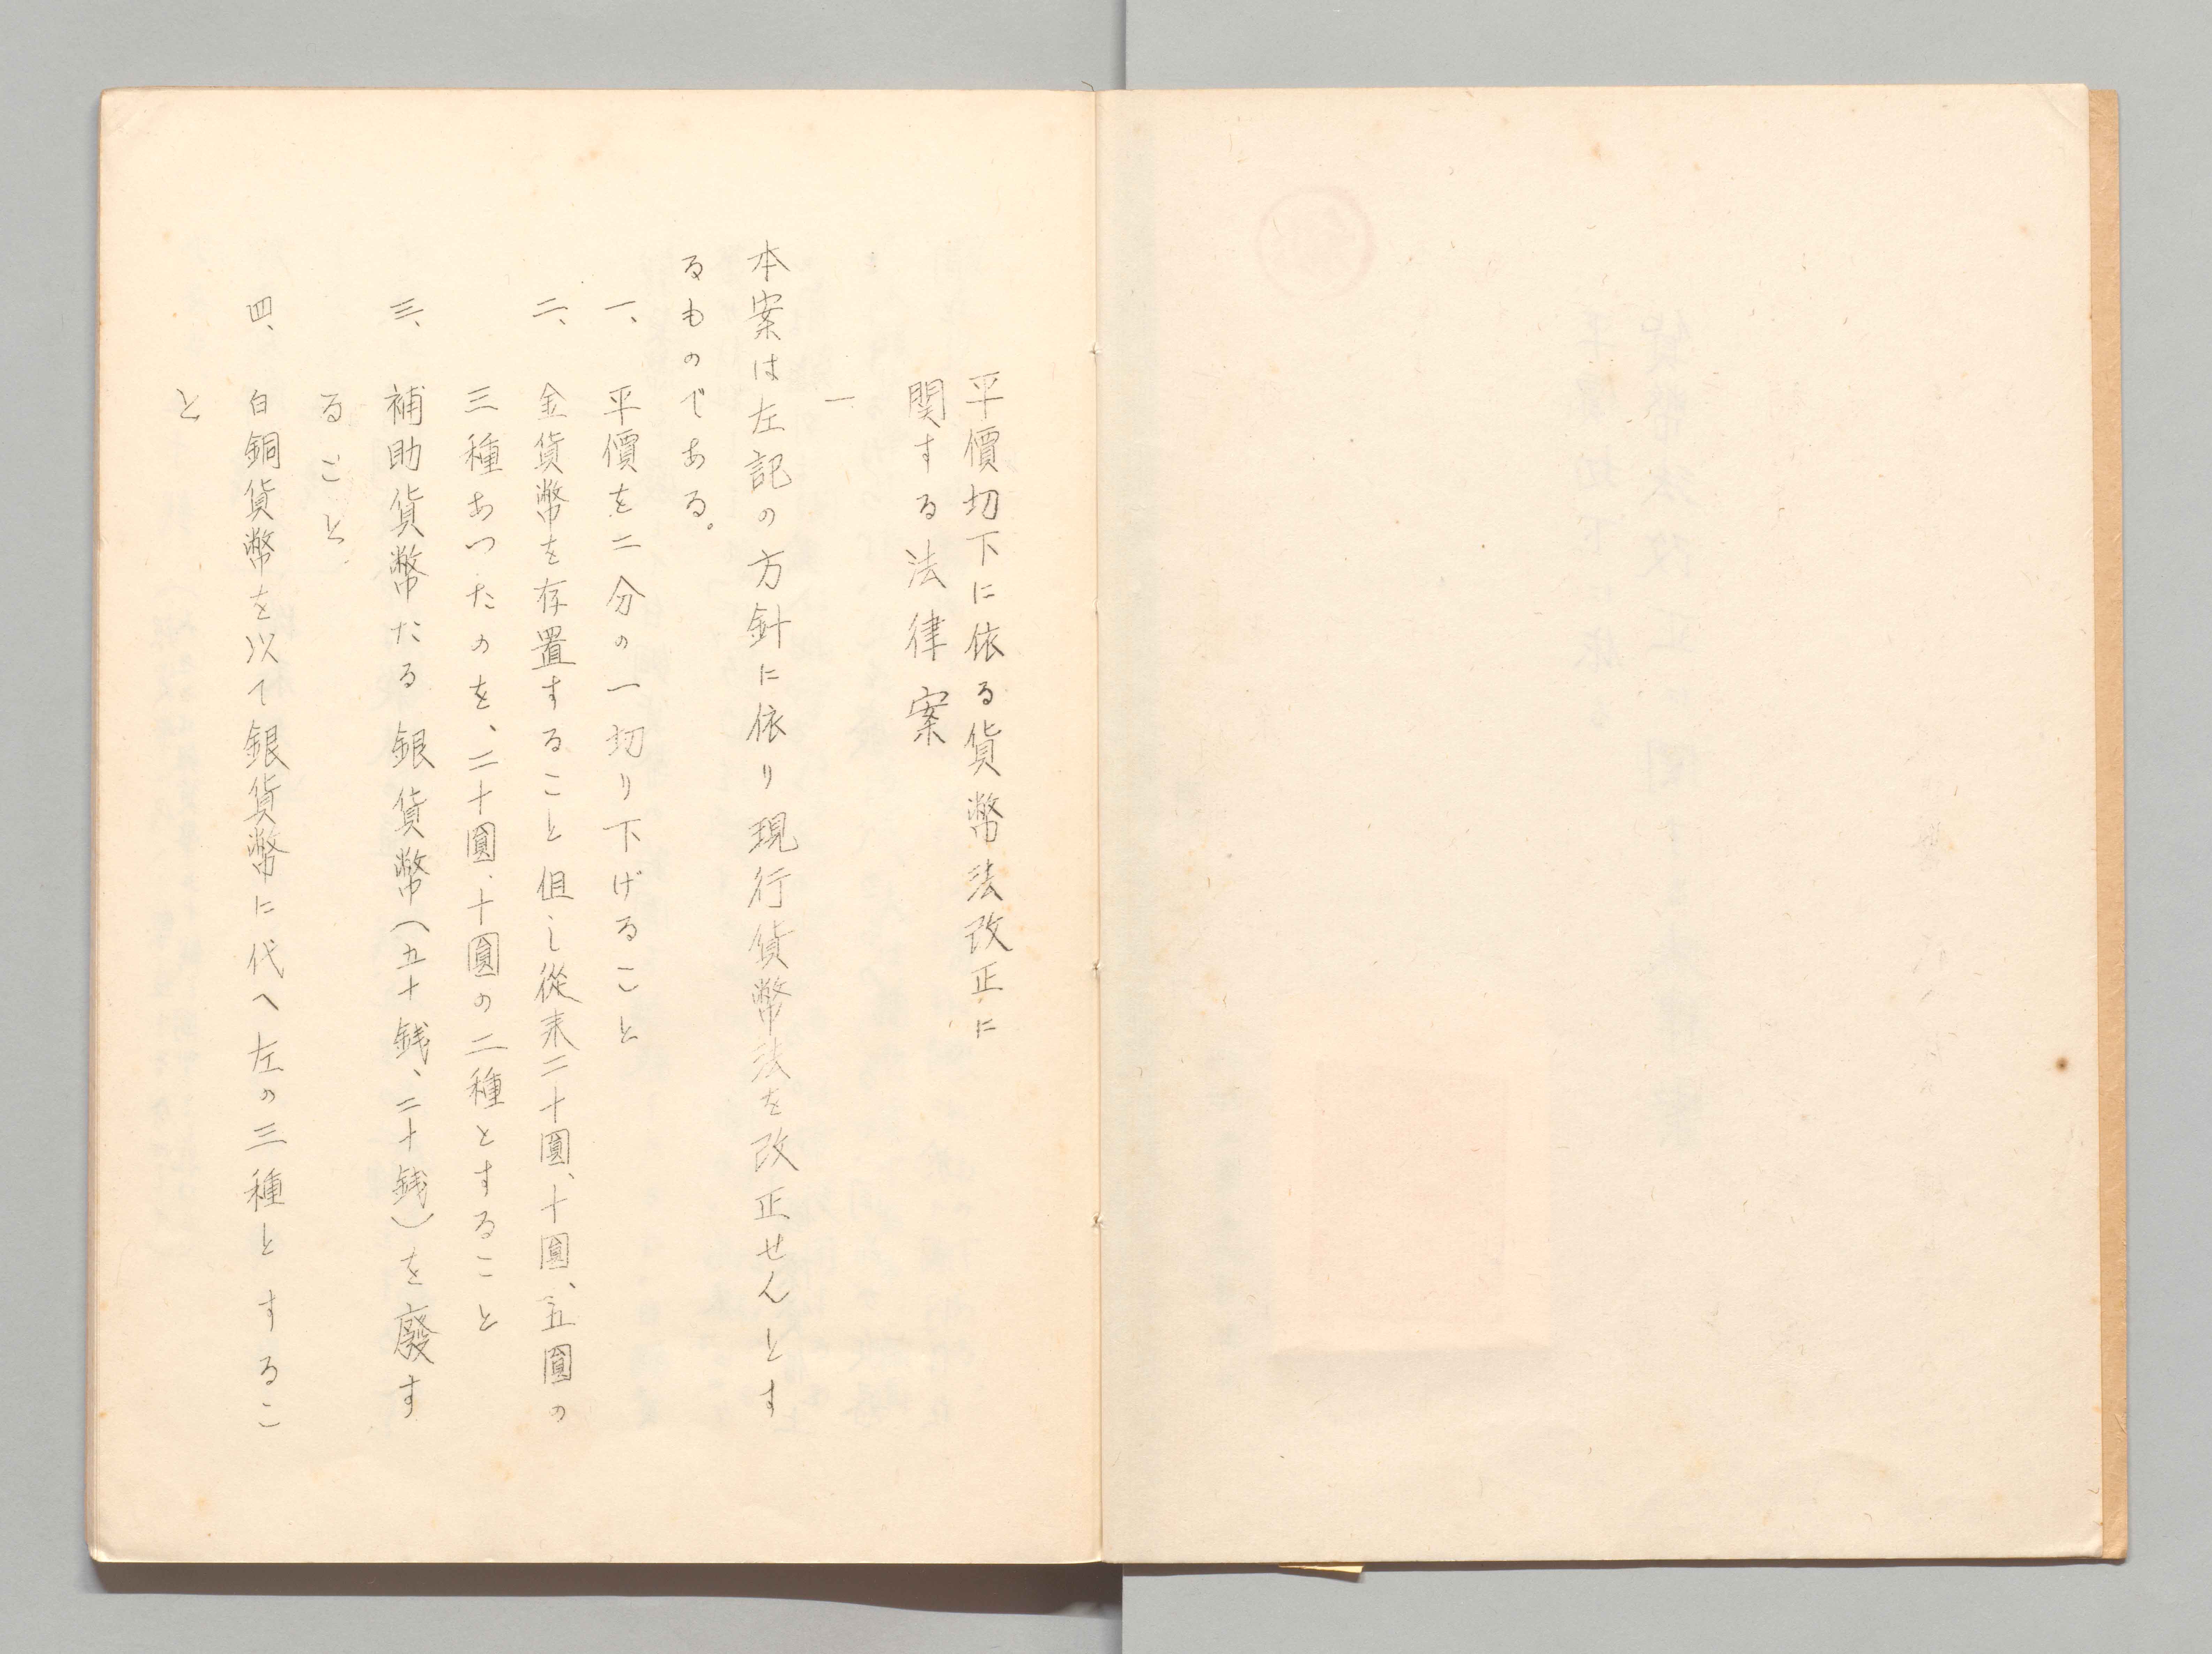 平價切下に依る貨幣法改正に
関する法律案
一
本案は左記の方針に依り現行貨幣法を改正せんとす
るものである。
一、平價を二分の一切り下げること
二、金貨幣を存置すること但し從来二十圓、十圓、五圓の
三種あつたのを、二十圓、十圓の二種とすること
三、補助貨幣たる銀貨幣(五十銭、二十銭)を廢す
ること
四、白銅貨幣を以て銀貨幣に代へ左の三種とするこ
と